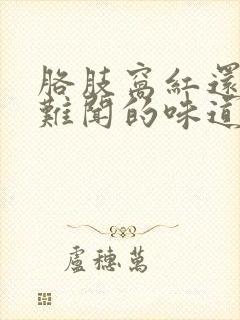 胳肢窩紅還
難聞的味道
盧穗萬